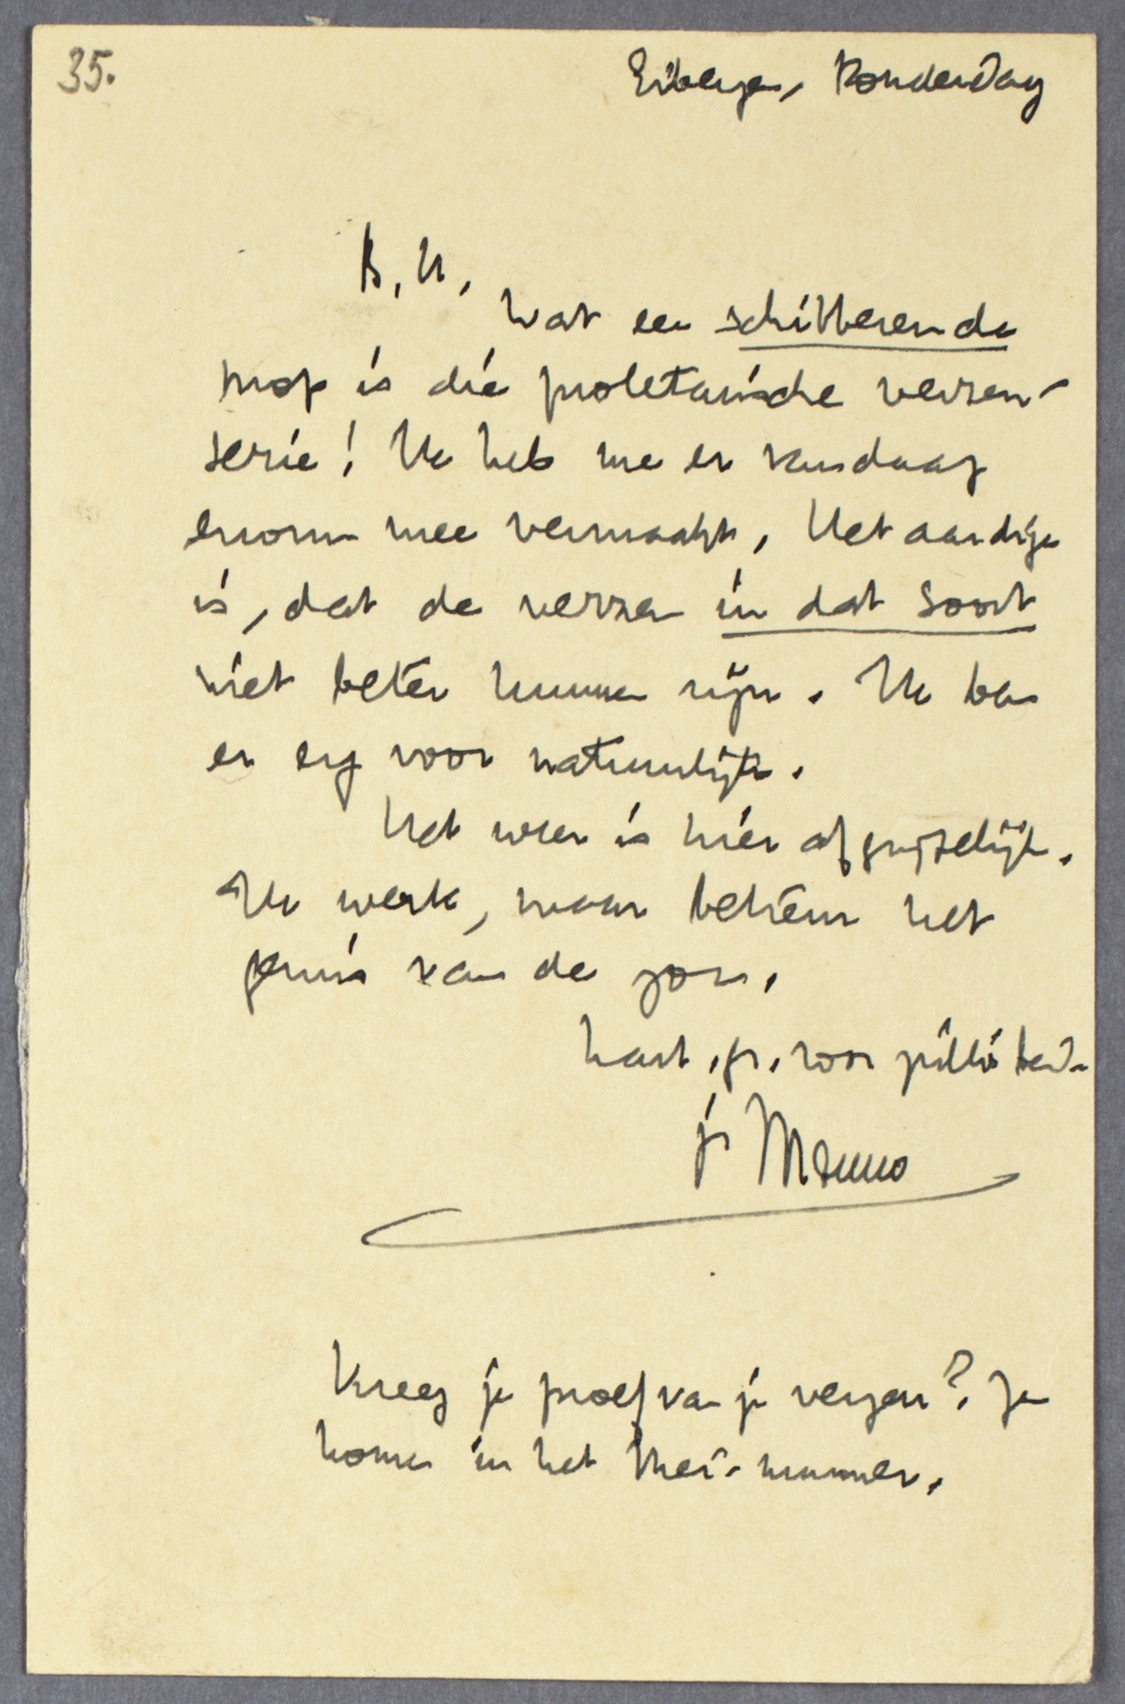 35.
Eibergen, Donderdag
B. H.,
Wat een schitterende
mop is die proletarische verzen-
serie! Ik heb me er vandaag
enorm mee vermaakt. Het aardige
is, dat de verzen in dat soort
niet beter kunnen zijn. Ik ben
er erg voor natuurlijk.
Het weer is hier afgrijselijk.
Ik werk, maar betreur het
gemis van de zon.
hart. gr. voor jullie beiden
je Menno
Kreeg je proef van je verzen? Ze
komen in het Mei-nummer.